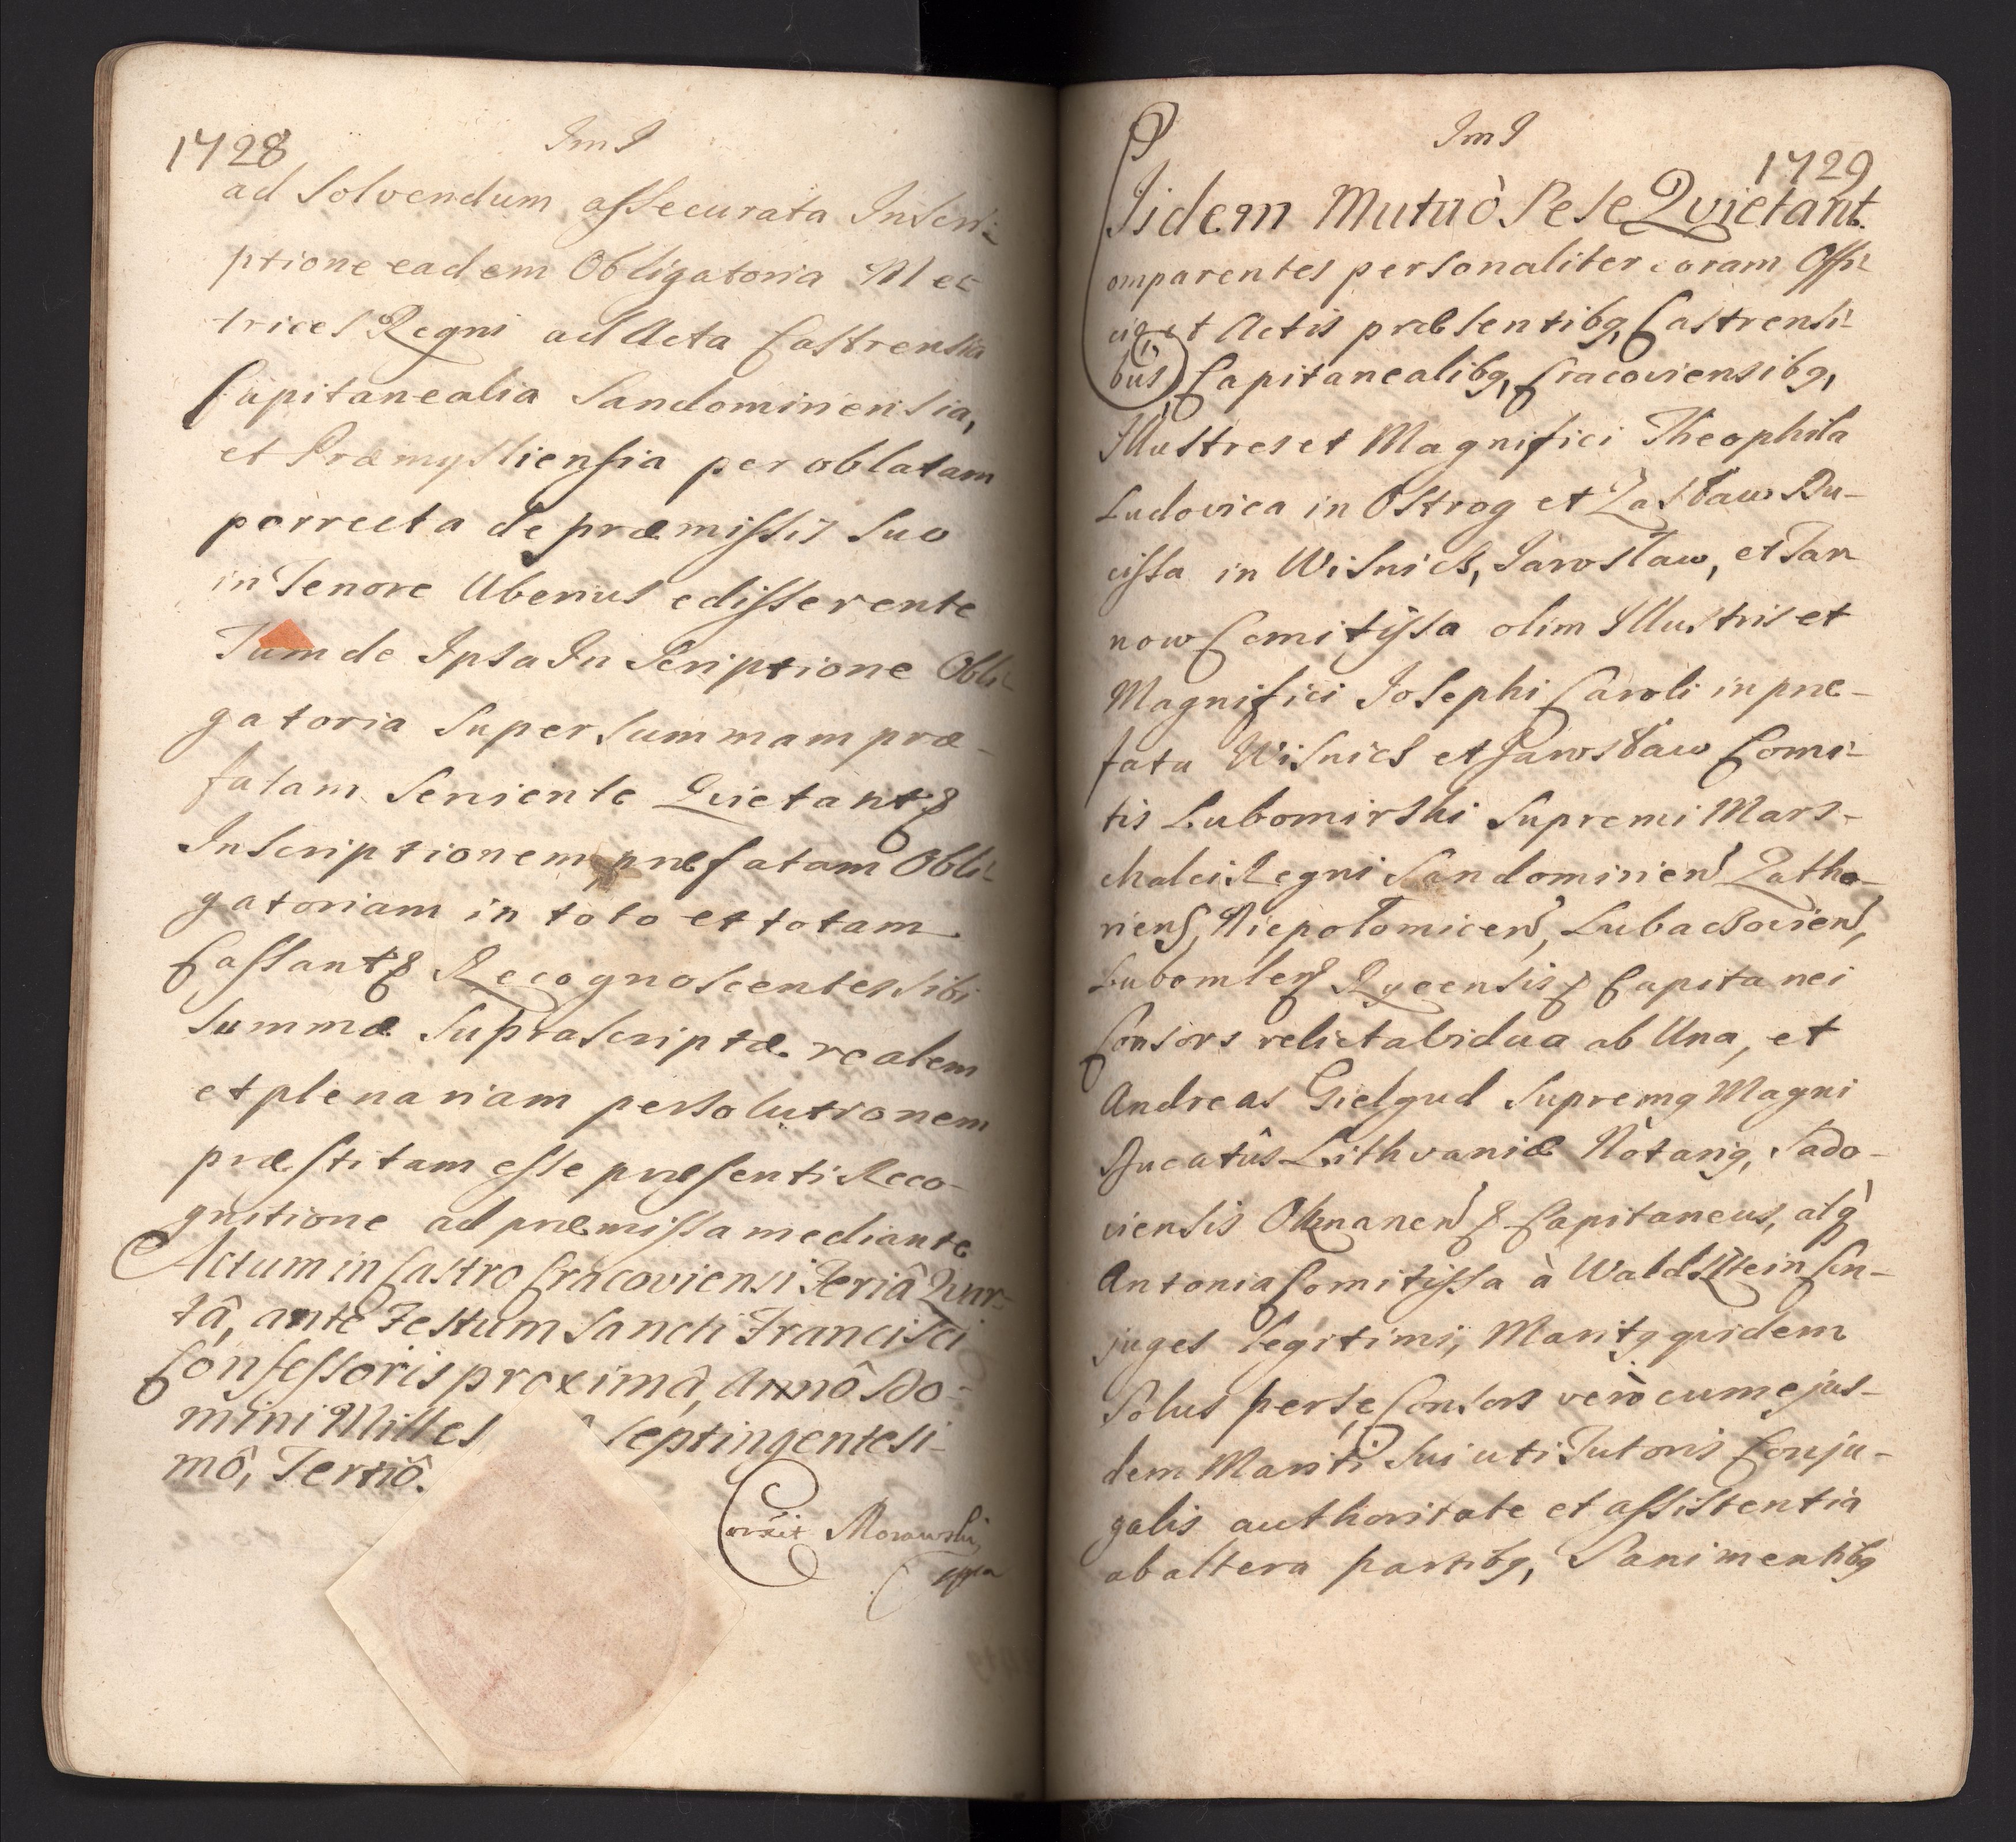 1728
ImI
ad Solvendum assecurata Inscri-
ptione eadem Obligatoria Met-
trices Regni ad Acta Castrensia
Capitanealia Sandomiriensia,
et Præmysliensia per oblatam
porrecta de præmissis Suo
in Tenore Uberius edisserente
Tum de Ipsa Inscriptione Obli-
gatoria Super Summam præ-
fatam Serviente Qvietant &
Inscriptionem præfatam Obli-
gatoriam in toto et totam
Cassant & Recognoscentes sibi
Summæ Suprascriptæ realem
et plenariam persolutionem
præstitam esse præsenti Reco-
gnitione ad præmissa mediante
Actum in Castro Cracoviensi Feriâ Qvar-
tâ, ante Festum Sancti Francisci
Confessoris proximâ, Annô Do-
mini Milles Septingentesi-
mô, Tertiô.
Corréxit Morawski
ImI
1729
Iidem Mutuò Sese Qvietant.
Comparentes personaliter coram Offi-
cio et Actis præsentibg Castrensi-
bus, Capitanealibg, Cracoviensibg,
Illustres et Magnifici Theophila
Ludovica in Ostrog et Zasław Du-
cissa in Wisnicz, Jarosław, et Tar
now Comitissa olim Illustris et
Magnifici Josephi Caroli in præ-
fata Wisnicz et Jarosław Comi-
tis Lubomirski Supremi Mars-
chalci Regni Sandomirien Zatho-
riens, Niepołomicen, Lubaczovien,
Lubomlen Rycensis & Capitanei
Consors relicta vidua ab Una, et
Andreas Gielgud Supremg Magni
Ducatûs Lithvaniæ Notarig, Sado-
viensis Okmanen & Capitaneus, atq
Antonia Comitissa à Waldsstein Con-
juges legitimi, Maritg quidem
Solus per se, Consors verò cum ejus-
dem Mariti Sui uti Tutoris Conju-
galis authoritate et assistentia
ab altera partibg, Sani mentibg